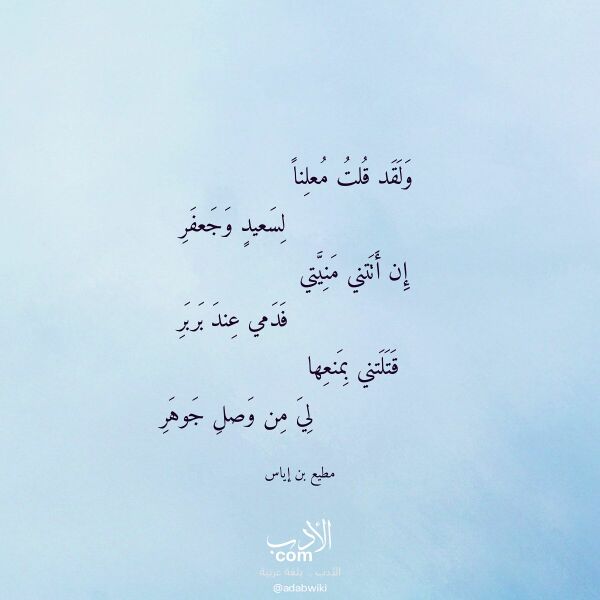 وَلَقَد قُلتُ مُعلِناً
لِسَعيدٍ وَجَعفَرِ
إِن أَتَتني مَنِيَّتي
فَدَمي عِندَ بَربَرِ
قَتَلَتني بِمَنعِها
لِيَ مِن وَصلِ جَوهَرِ
مطيع بن إياس
الأدب
com
الأدب .. بلغة عربية
@adabwiki